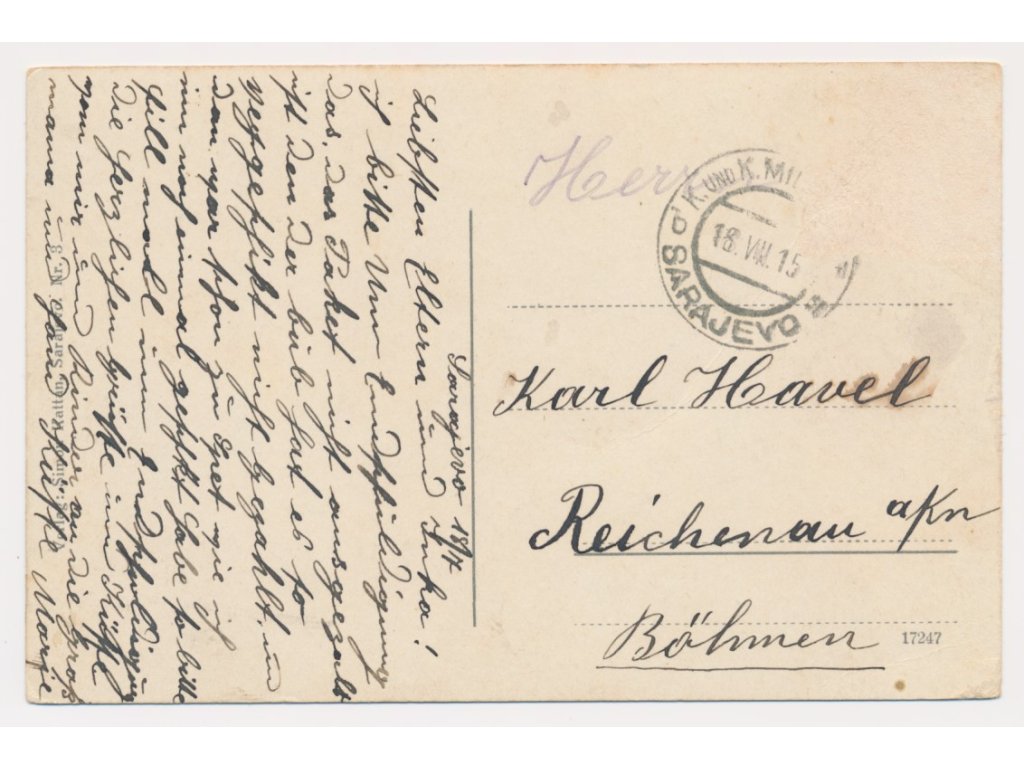 Sarajevo 18/7
Liebsten Eltern und Inka!
ich bitte Um Entschuldigung
das, das Paket nicht ausgezalt
ist den der bub hat es so
weggeschikt nicht gezahlt, und
dan war schon zu spät wie ich
im noch einmal geschikt habe so bitte
fill mals um Entschuldigung
Die herzlichen grüße und Küße
von mir und Kinder an die Groß
mama und Küße Marie
Verlag: Simon Kattan, Sarajevo. Nr. 3
Herr
K. UND K. MIL
SARAJEVO
18. VIII. 15
Karl Havel
Reichenau a/Kn
Böhmen
17247